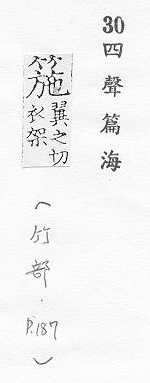 30四聲篇海
𥬠翼之切
衣架
(竹部．
P.187)